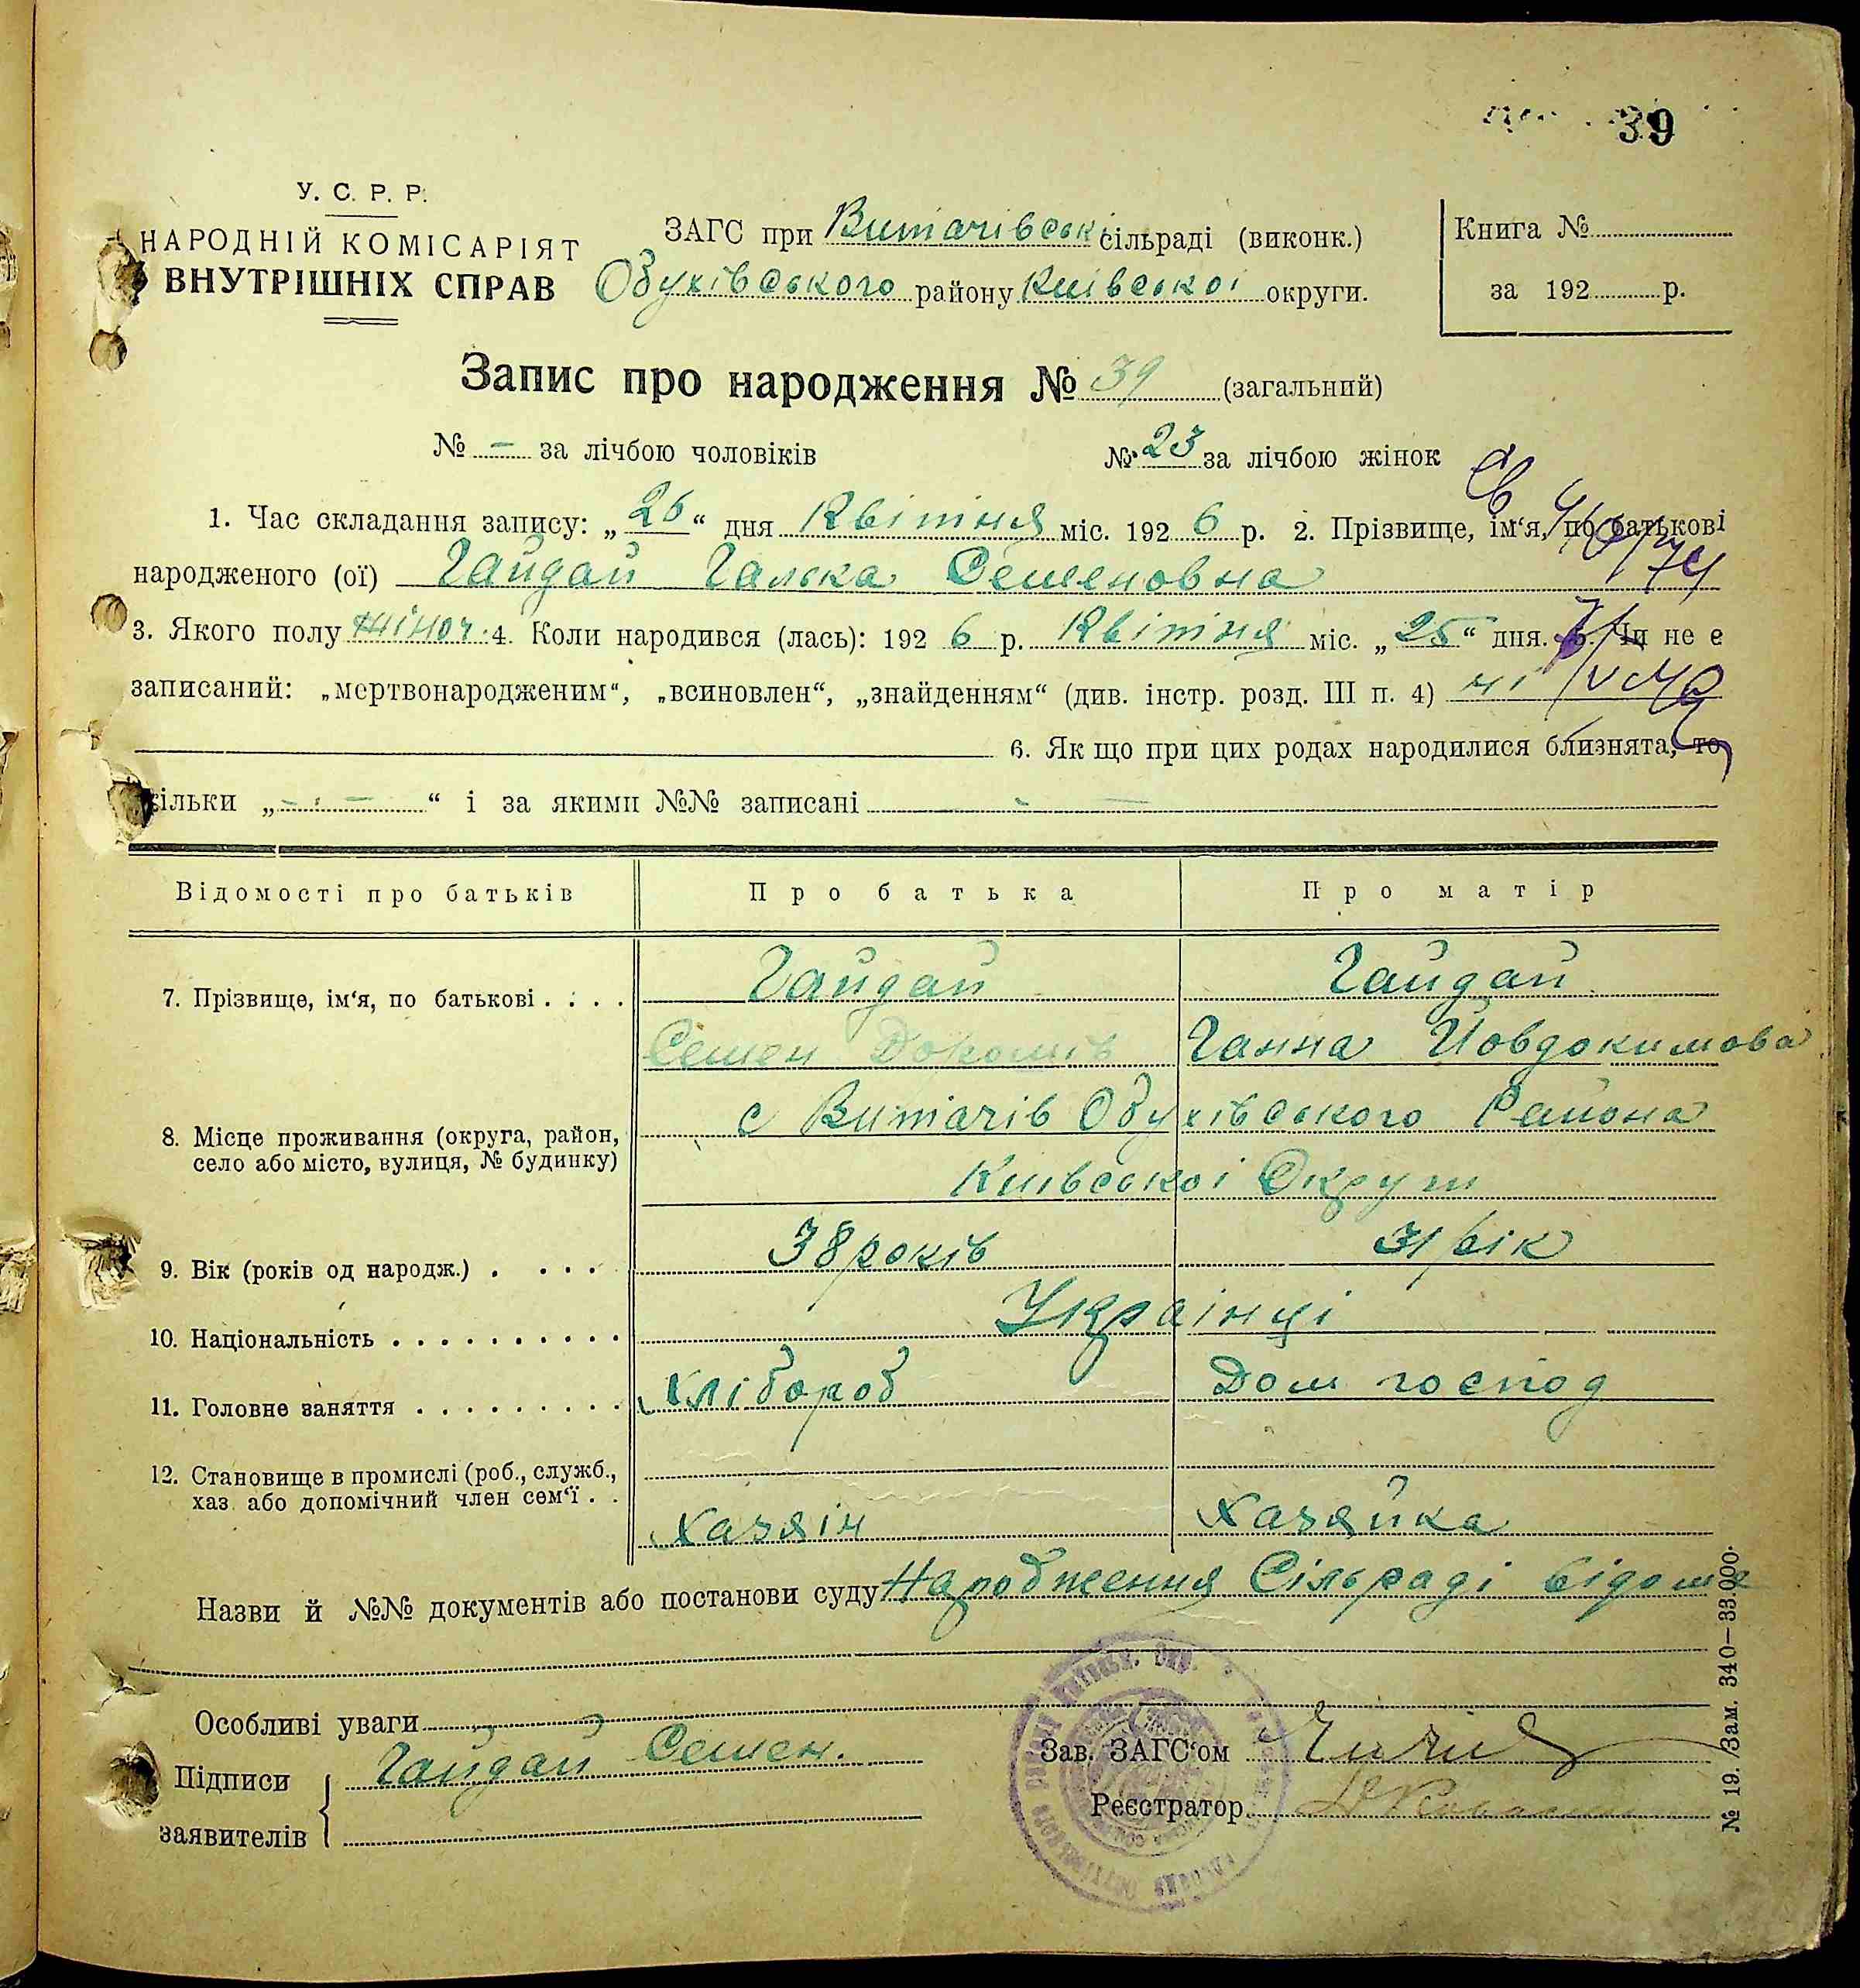 39
У. С. Р. Р.
НАРОДНІЙ КОМІСАРІЯТ
ВНУТРІШНІХ СПРАВ
ЗАГС при Витачівськ. сільраді (виконк.)
Обухівського району Київськоі округи.
Книга №
за 192 р.
Запис про народження № 39 (загальний)
№ – за лічбою чоловіків № 23 за лічбою жінок
1. Час складання запису: „26“ дня Квітня міс. 1926 р. 2. Прізвище, ім‘я, по батькові
народженого (ої) Гайдай Галька Семеновна
3. Якого полу жіноч. 4. Коли народився (лась): 1926 р. Квітня міс. „25“ дня. 5. Чи не є
записаний: „мертвонародженим“, „всиновлен“, „знайденням“ (див. інстр. розд. III п. 4) ні
6. Як що при цих родах народилися близнята, то
скільки „– –“ і за якими №№ записані – –
Відомості про батьків Про батька Про матір
7. Прізвище, ім‘я, по батькові . . . . Гайдай Гайдай
Семен Ганна Йовдокимова
8. Місце проживання (округа, район, село або місто, вулиця, № будинку) с Витачів Обухівського Района
Київськоі Округи
9. Вік (років од народж.) . . . . 38 років 31 рік
10. Національність . . . . . . . . . . Украінці
11. Головне заняття . . . . . . . . . Хлібороб Дом господ
12. Становище в промислі (роб., служб., хаз. або допомічний член сем‘ї . . Хазяін Хазяйка
Назви й №№ документів або постанови суду Народження Сільраді відоме
Особливі уваги
Підписи заявителів { Гайдай Семен.
Зав. ЗАГС‘ом
Реєстратор
№ 19. Зам. 340—33.000.